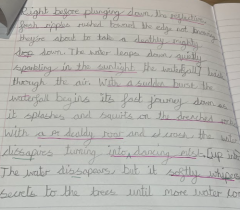 Right before plunging down, the
fresh ripples rushed toward the edge not knowing
they're about to take a deathly mighty
drop down. The water leaps down quietly
sparkling in the sunlight the waterfall
through the air. With a sudden burst the
waterfall begins its fast journey down as
it splashes and squirts on the
With a deadly roar and the
dissapears turning into a dancing mist. (up
The water dissapears but it softly whispers
secrets to the trees until more water